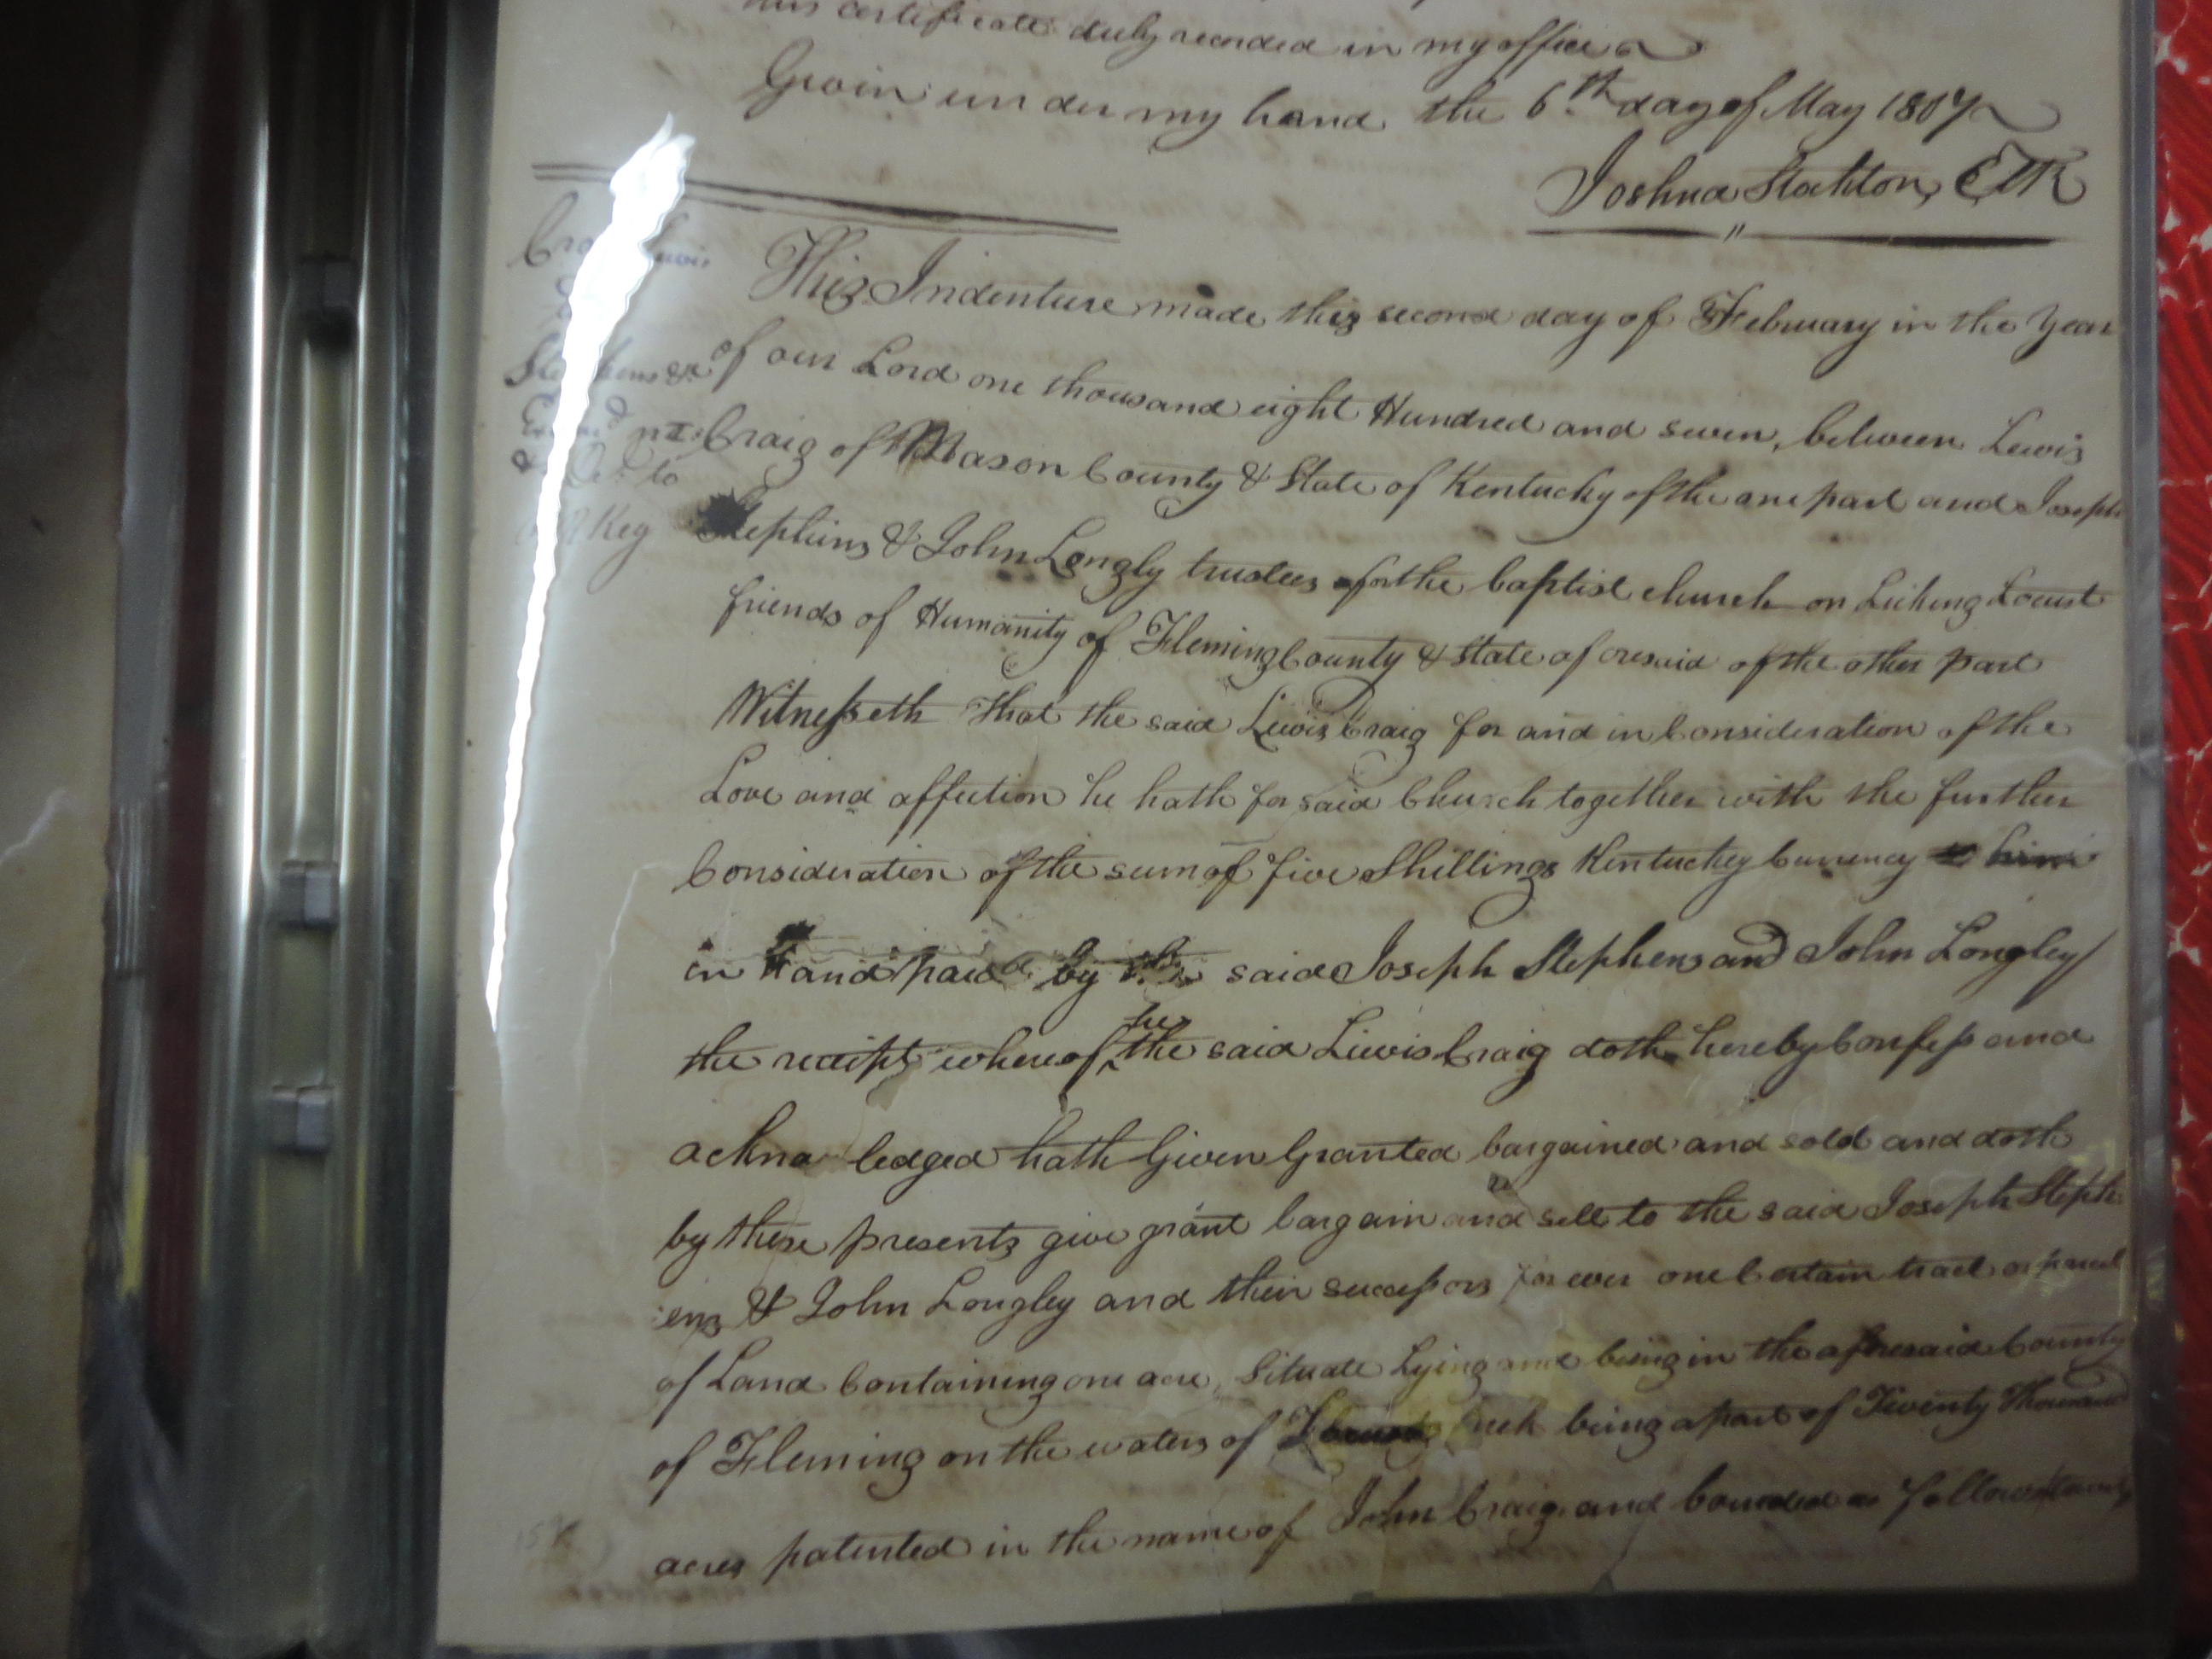 this certificate duly recorded in my office
Given under my hand the 6th day of May 1807
Joshua Stockton, Clk
This Indenture made this second day of February in the Year
of our Lord one thousand eight Hundred and seven, between Lewis
Craig of Mason County & State of Kentucky of the one part and Joseph
Stephens & John Longly trustees for the baptist church on Licking Locust
friends of Humanity of Fleming County & State aforesaid of the other part
Witnesseth That the said Lewis Craig for and in Consideration of the
Love and affection he hath for said Church together with the further
Consideration of the sum of five Shillings Kentucky Currency to him
in Hand paid by the said Joseph Stephens and John Longley
the receipt whereof he the said Lewis Craig doth hereby Confess and
ackno ledged hath Given Granted bargained and sold and doth
by these presents give grant bargain and sell to the said Joseph Steph
ens & John Longley and their successors for ever one Certain tract or parcel
of Land Containing one acre, Situate Lying and being in the aforesaid County
of Fleming on the waters of creek being a part of Twenty Thousand
acres patented in the name of John Craig and bounded as follows